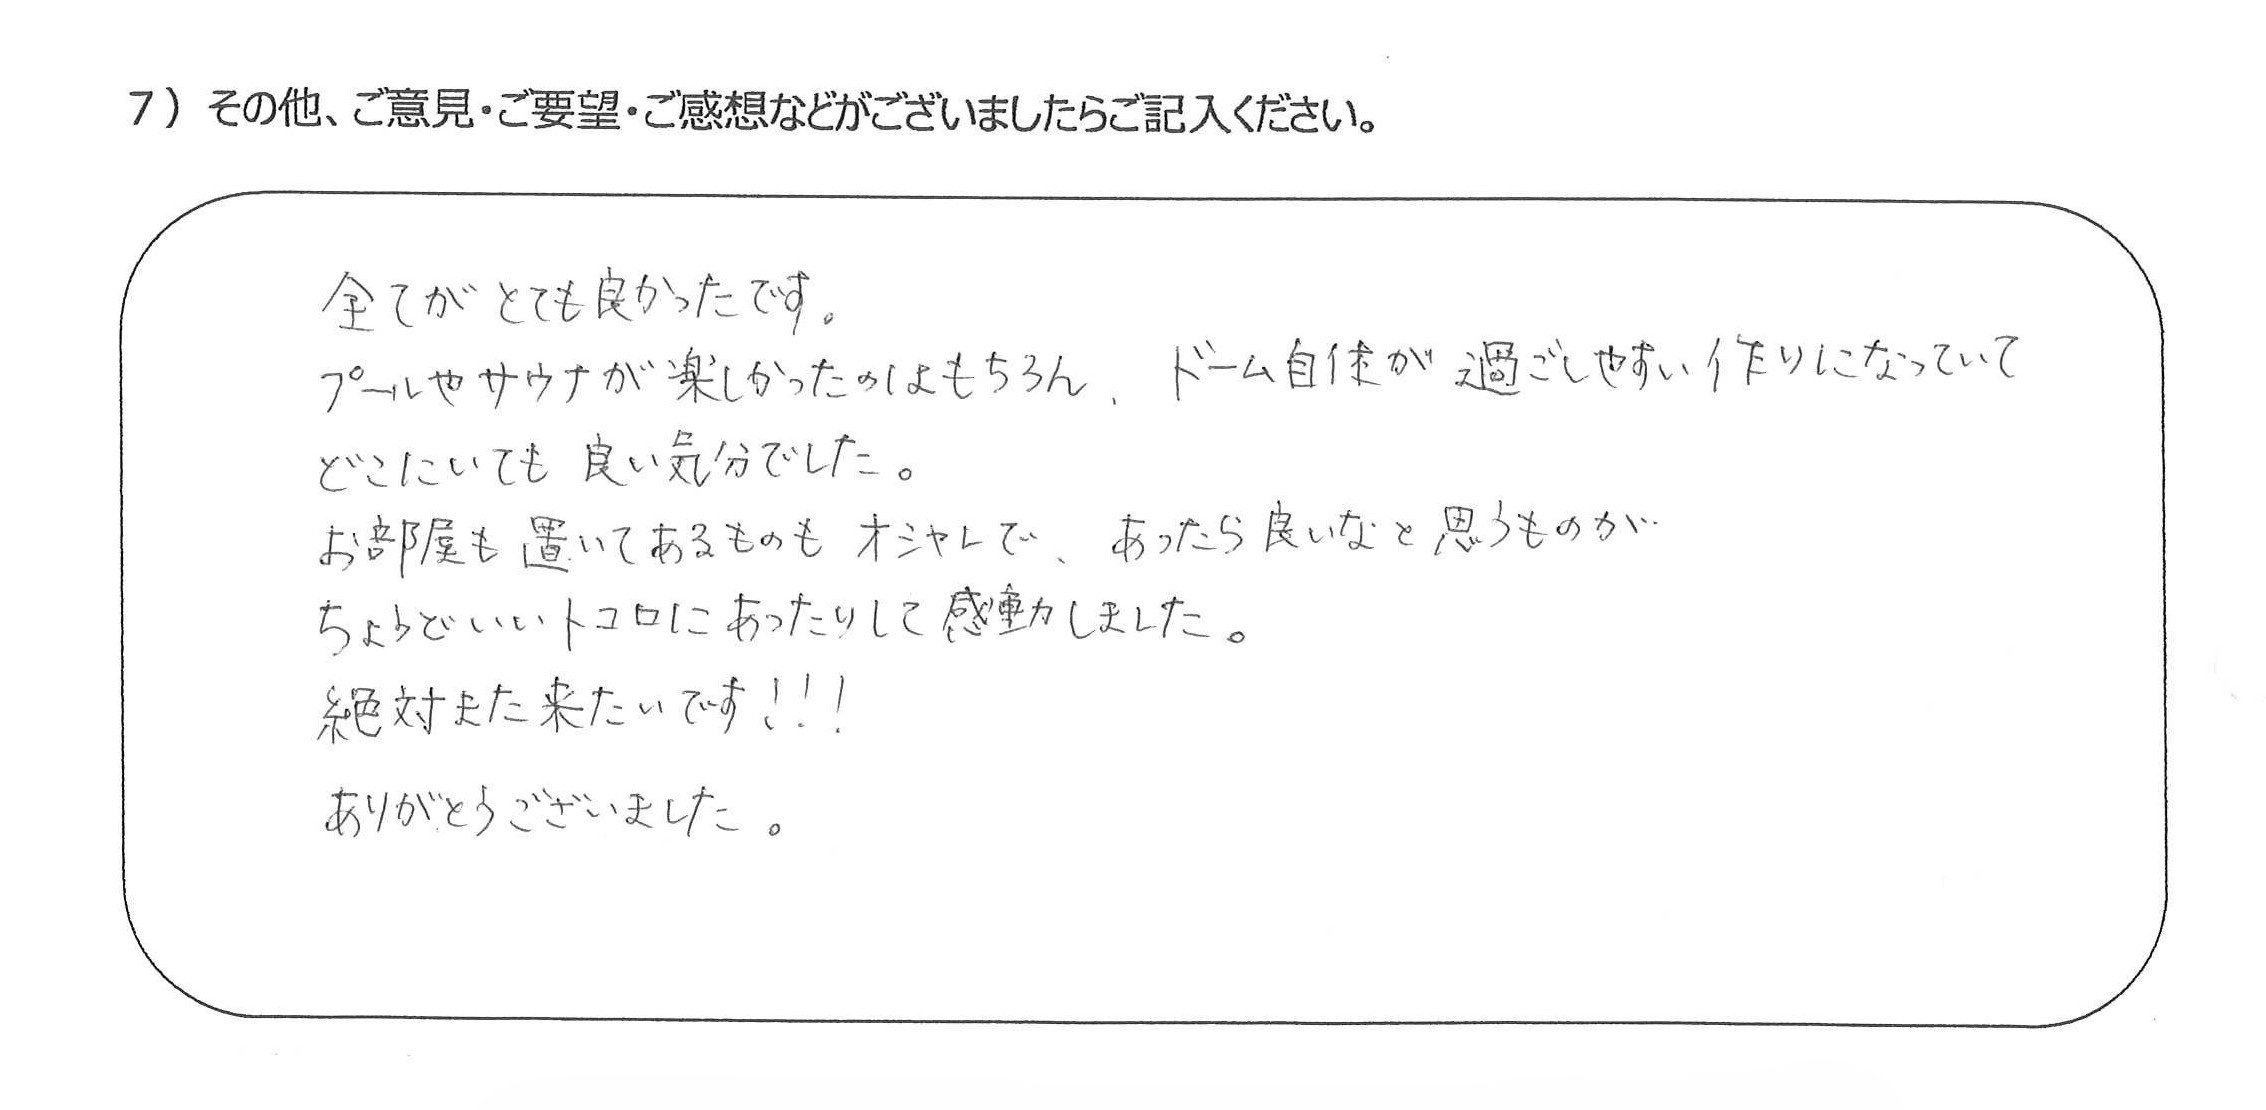 7）その他、ご意見・ご要望・ご感想などがございましたらご記入ください。
全てがとても良かったです。
プールやサウナが楽しかったのはもちろん、ドーム自体が過ごしやすい作りになっていて
どこにいても良い気分でした。
お部屋も置いてあるものもオシャレで、あったら良いなと思うものが
ちょうどいいトコロにあったりして感動しました。
絶対また来たいです!!!
ありがとうございました。